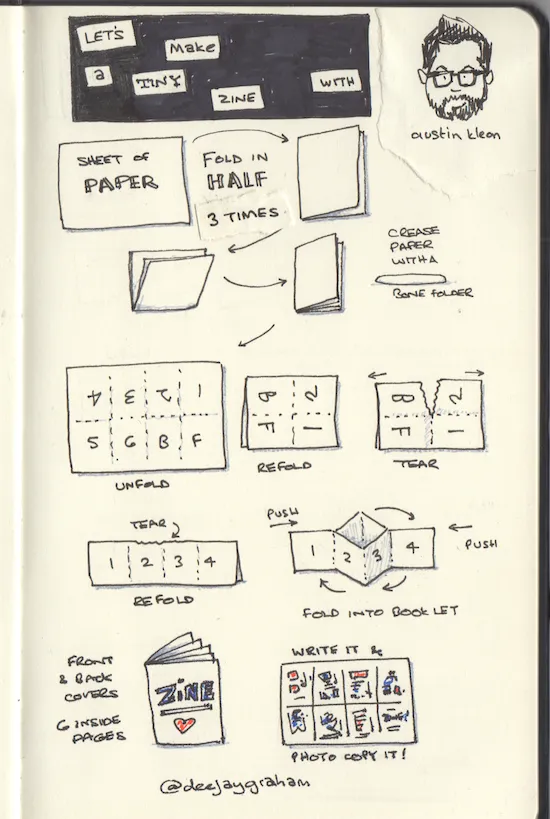 LET'S
Make
a
TINY
ZINE
WITH
austin kleon
SHEET OF
PAPER
FOLD IN
HALF
3 TIMES
CREASE
PAPER
WITH A
BONE FOLDER
4 3 2 1
5 6 B F
UNFOLD
B 2
F 1
REFOLD
B 2
F 1
TEAR
TEAR
1 2 3 4
REFOLD
PUSH
1 2 3 4
PUSH
FOLD INTO BOOKLET
FRONT
& BACK
COVERS
6 INSIDE
PAGES
ZINE
WRITE IT &
PHOTO COPY IT!
@deejaygraham